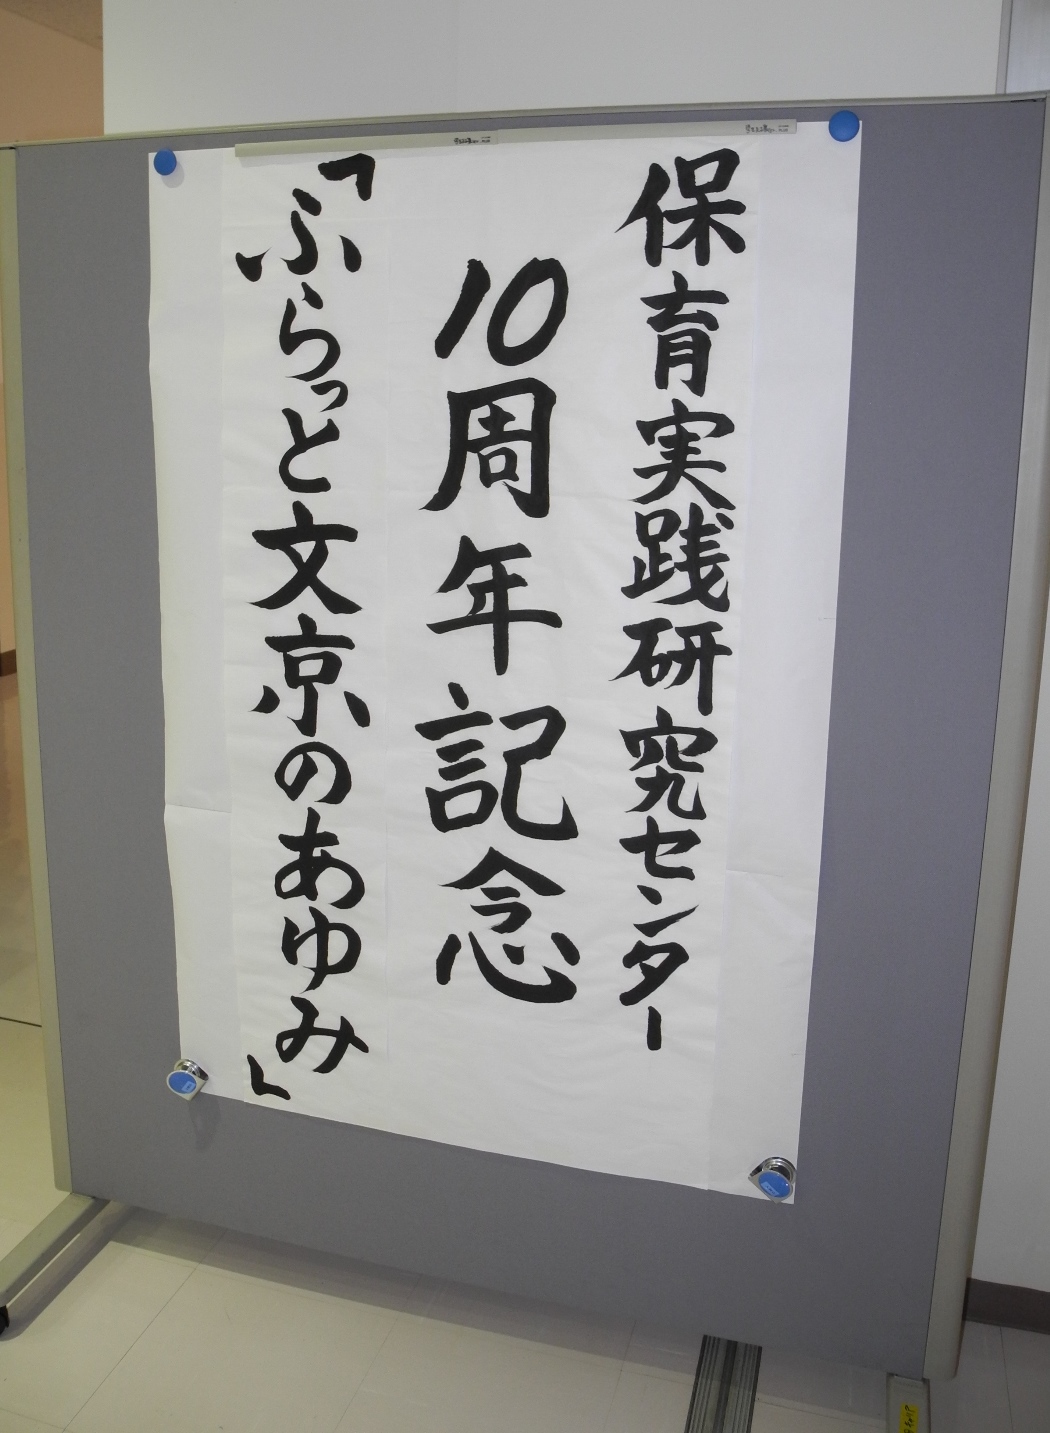 保育実践研究センター
10周年記念
「ふらっと文京のあゆみ」